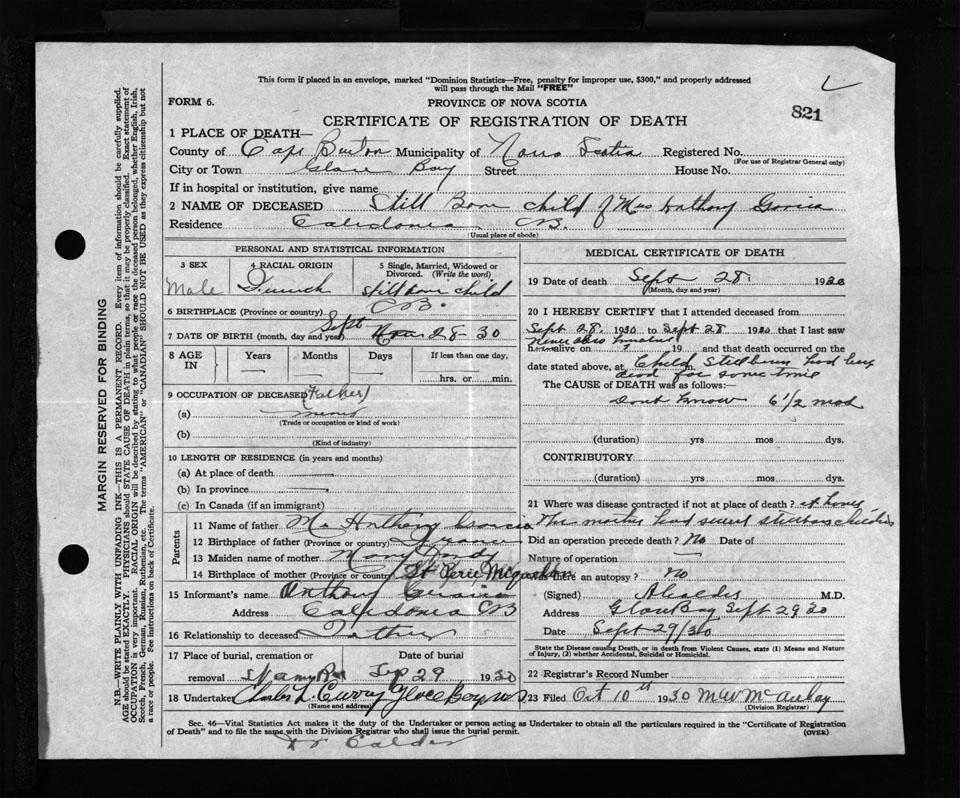 This form if placed in an envelope, marked "Dominion Statistics—Free, penalty for improper use, $300," and properly addressed
will pass through the Mail "FREE"
FORM 6.
PROVINCE OF NOVA SCOTIA
821
CERTIFICATE OF REGISTRATION OF DEATH
1 PLACE OF DEATH—
County of Cape Breton Municipality of Nova Scotia Registered No.
(For use of Registrar General only)
City or Town Glace Bay Street House No.
If in hospital or institution, give name
2 NAME OF DECEASED Still Born child of Mrs Anthony
Residence Caledonia CB.
(Usual place of abode)
PERSONAL AND STATISTICAL INFORMATION
3 SEX 4 RACIAL ORIGIN 5 Single, Married, Widowed or Divorced. (Write the word)
Male stillborn child
6 BIRTHPLACE (Province or country) CB.
7 DATE OF BIRTH (month, day and year) Sept 28 30
8 AGE IN Years Months Days If less than one day,
hrs. or min.
9 OCCUPATION OF DECEASED (Father)
(a)
(Trade or occupation or kind of work)
(b)
(Kind of industry)
10 LENGTH OF RESIDENCE (in years and months)
(a) At place of death
(b) In province
(c) In Canada (if an immigrant)
Parents
11 Name of father Mr Anthony
12 Birthplace of father (Province or country) France
13 Maiden name of mother Mary
14 Birthplace of mother (Province or country) St Pierre Miquelon
15 Informant's name Anthony
Address Caledonia CB
16 Relationship to deceased Father
17 Place of burial, cremation or removal Date of burial
Sep 29 1930
18 Undertaker Charles L. Curry Glace Bay N.S.
(Name and address)
MEDICAL CERTIFICATE OF DEATH
19 Date of death Sept 28 1930
(Month, day and year)
20 I HEREBY CERTIFY that I attended deceased from
Sept 28 1930 to Sept 28 1930 that I last saw
h alive on 19 and that death occurred on the
date stated above, at m. Child Stillborn had been
dead for some time
The CAUSE of DEATH was as follows:—
Dont know 6 1/2 mos
(duration) yrs mos dys.
CONTRIBUTORY
(duration) yrs mos dys.
21 Where was disease contracted if not at place of death? at home
The mother had several stillborn children
Did an operation precede death? No Date of
Nature of operation
Was there an autopsy? No
(Signed) M.D.
Address Glace Bay Sept 29 30
Date Sept 29/30
State the Disease causing Death, or in death from Violent Causes, state (1) Means and Nature of Injury, (2) whether Accidental, Suicidal or Homicidal.
22 Registrar's Record Number
23 Filed Oct 10th 1930
(Division Registrar)
Sec. 46—Vital Statistics Act makes it the duty of the Undertaker or person acting as Undertaker to obtain all the particulars required in the "Certificate of Registration
of Death" and to file the same with the Division Registrar who shall issue the burial permit. (OVER)
Dr Calder
MARGIN RESERVED FOR BINDING
N.B.—WRITE PLAINLY WITH UNFADING INK—THIS IS A PERMANENT RECORD. Every item of information should be carefully supplied.
AGE should be stated EXACTLY. PHYSICIANS should STATE CAUSE OF DEATH in plain terms, so that it may be properly classified. Exact statement of
OCCUPATION is very important. RACIAL ORIGIN will be described by stating to what people or race the deceased person belonged, whether English, Irish,
Scotch, French, German, Russian, Ruthenian, etc. The terms "AMERICAN" or "CANADIAN" SHOULD NOT BE USED as they express citizenship but not
a race or people. See instructions on back of Certificate.